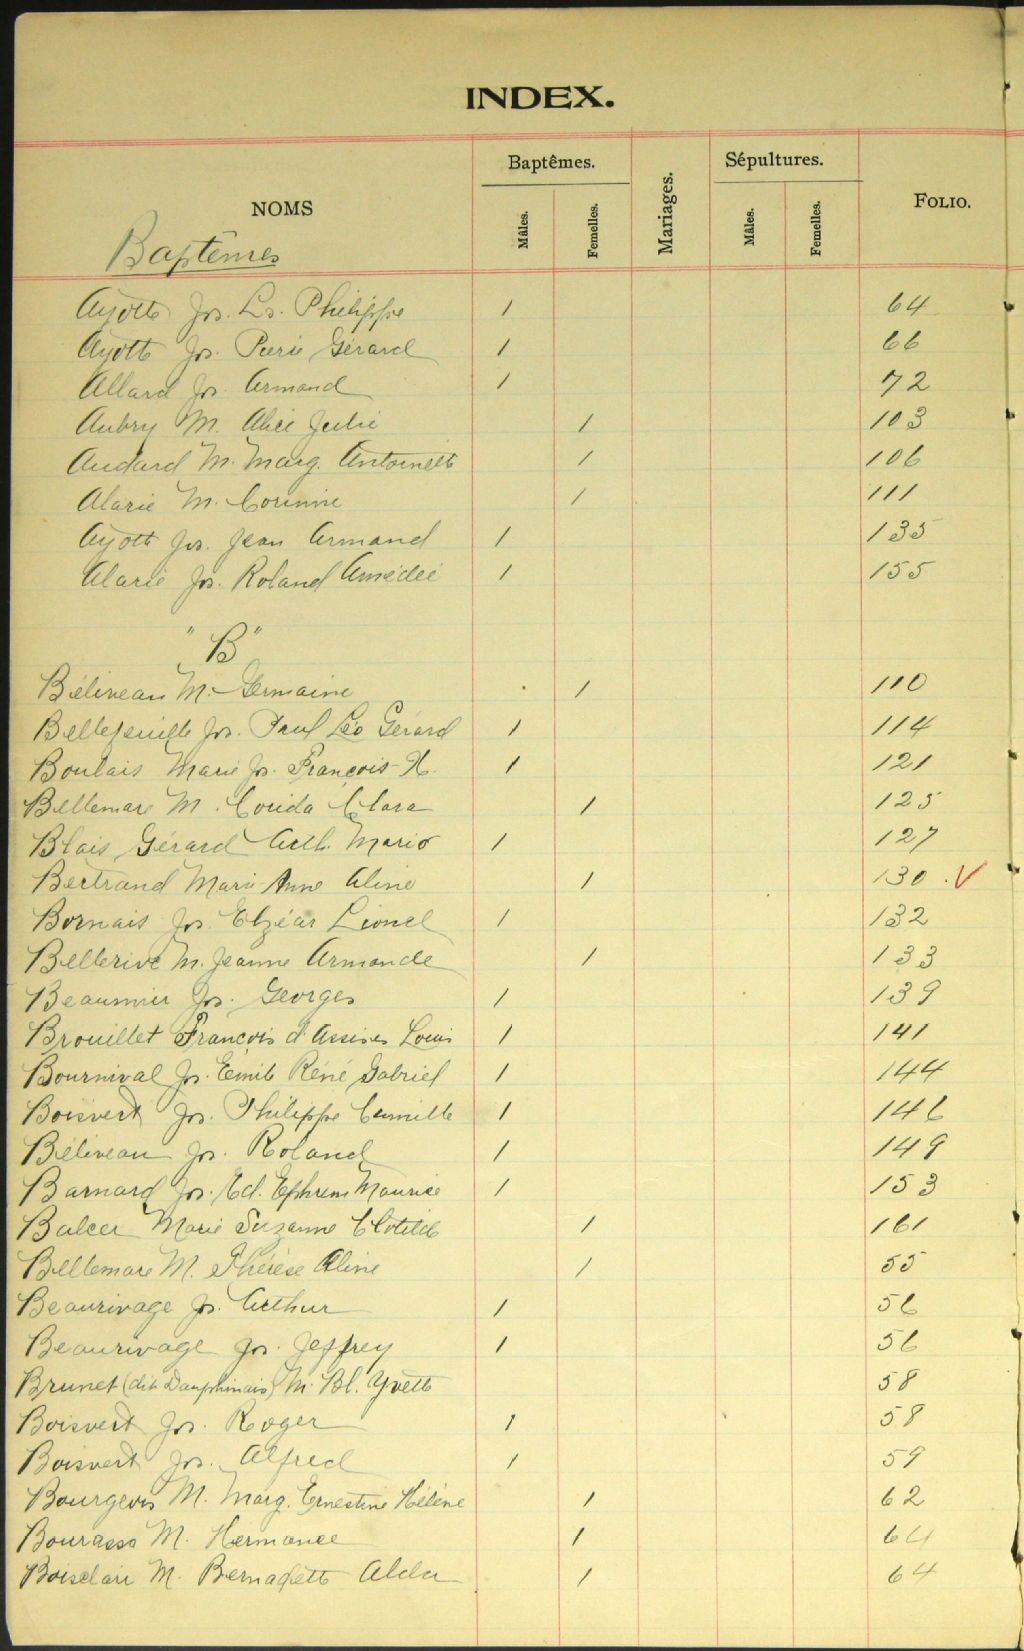 INDEX.
NOMS Baptêmes. Mariages. Sépultures. FOLIO.
Mâles. Femelles. Mâles. Femelles.
Baptêmes
Ayotte Jos. Ls. Philippe 1 64
Ayotte Jos. Pierre Gérard 1 66
Allard Jos. Armand 1 72
Aubry M. Alice Julie 1 103
Audard M. Marg. Antoinette 1 106
Alarie M. Corinne 1 111
Ayotte Jos. Jean Armand 1 135
Alarie Jos. Roland Amédée 1 155
"B"
Béliveau M. Germaine 1 110
Bellefeuille Jos. Paul Léo Gérard 1 114
Boulais Marie Jos. François-X. 1 121
Bellemare M. Clara 1 125
Blais Gérard Arth. Mario 1 127
Bertrand Marie-Anne Aline 1 130 . V
Bornais Jos. Elzéar Lionel 1 132
Bellerive M. Jeanne Armande 1 133
Beaumier Jos. Georges 1 139
Brouillet François d'Assises Louis 1 141
Bournival Jos. Emile Réné Gabriel 1 144
Boisvert Jos. Philippe Camille 1 146
Béliveau Jos. Roland 1 149
Barnard Jos. Ed. Ephrem Maurice 1 153
Balcer Marie Suzanne Clotilde 1 161
Bellemare M. Thérèse Aline 1 55
Beaurivage Js. Arthur 1 56
Beaurivage Jos. Jeffrey 1 56
Brunet (dit Dauphinais) M. Bl. Yvette 58
Boisvert Jos. Roger 1 58
Boisvert Jos. Alfred 1 59
Bourgeois M. Marg. Ernestine Hélène 1 62
Bourassa M. Hermance 1 64
Boisclair M. Bernadette Alda 1 64